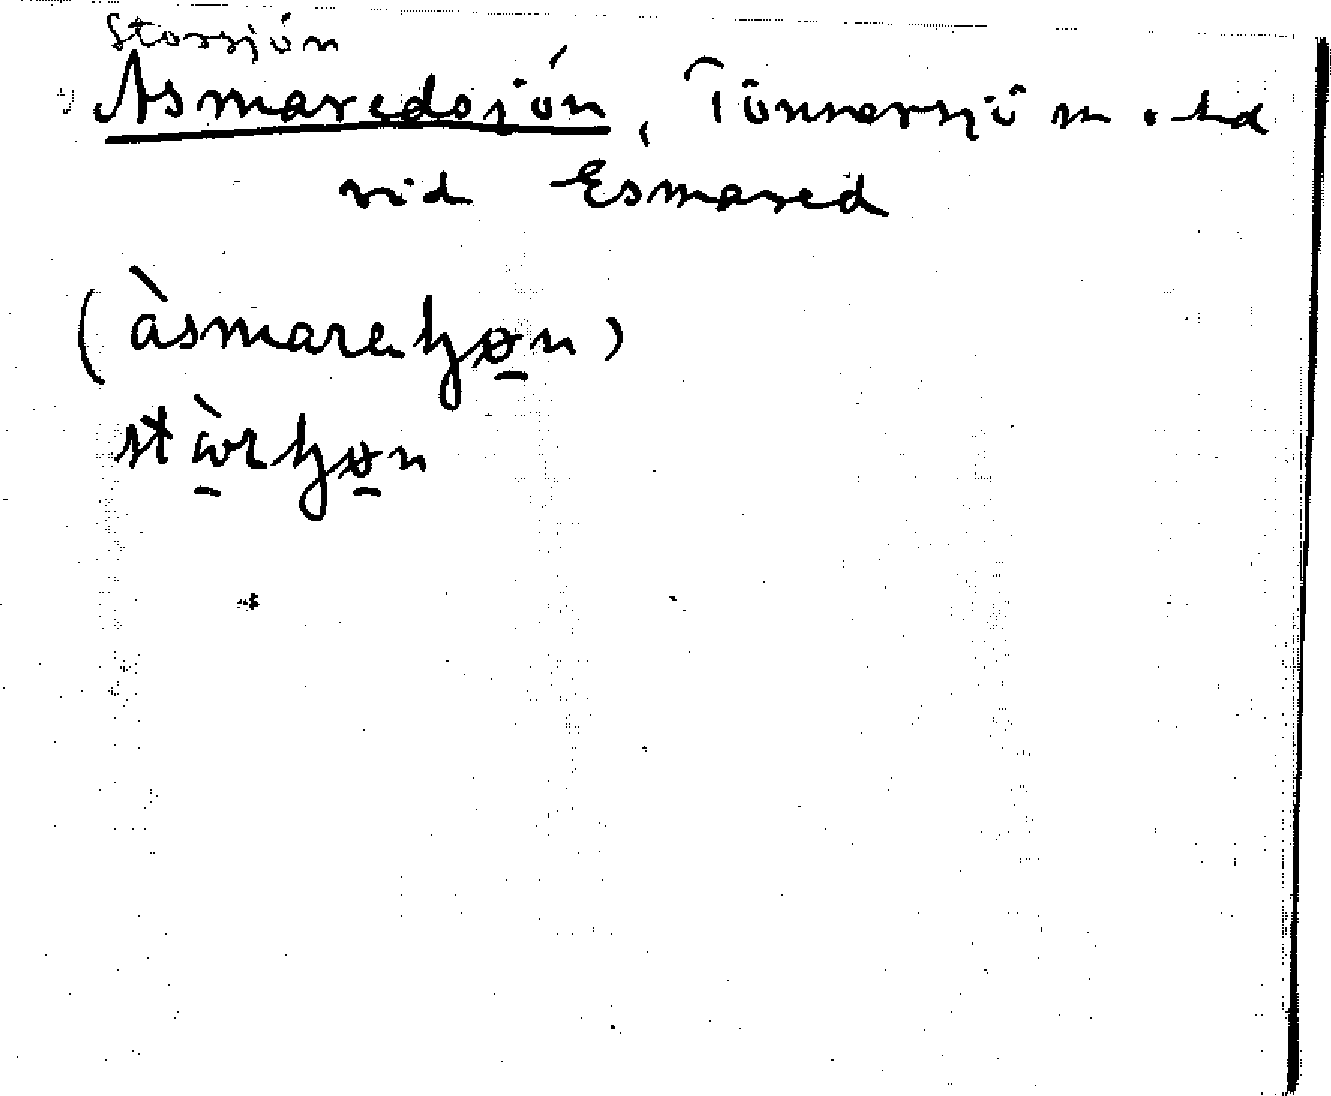 Storsjön
Asmaredsjön, Tönnersjö sn o. hd
vid Esmared
(àsmareɧø̱n)
stὼ̱rɧø̱n